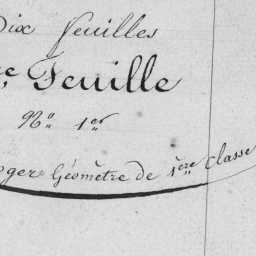 Dix feuilles
Feuille
No. 1er
Géomètre de 1ère Classe